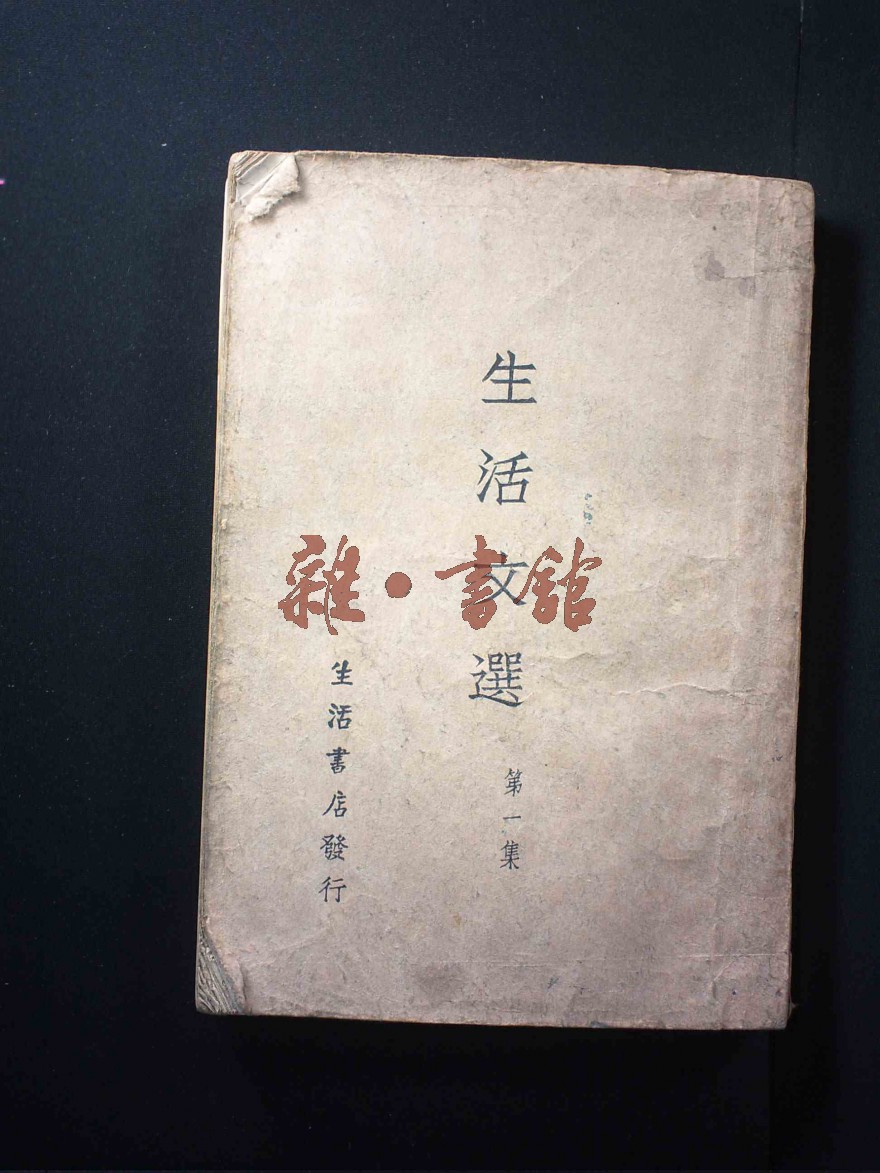 生活文選
第一集
生活書店發行
雜·書館